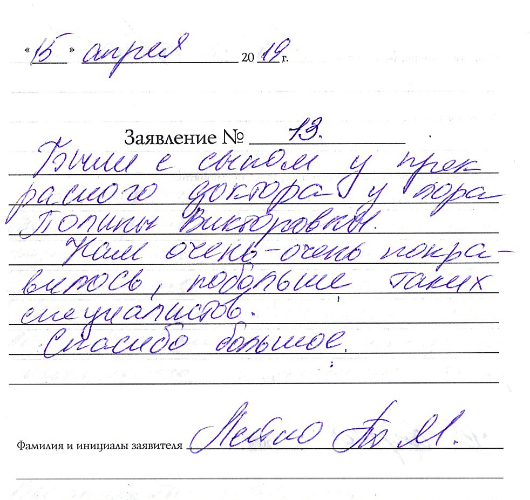 « 15 » апреля 2019 г.
Заявление № 13.
Были с сыном у прек
расного доктора у лора
Полины Викторовны.
Нам очень-очень понра-
вилось, побольше таких
специалистов.
Спасибо большое.
Фамилия и инициалы заявителя М.